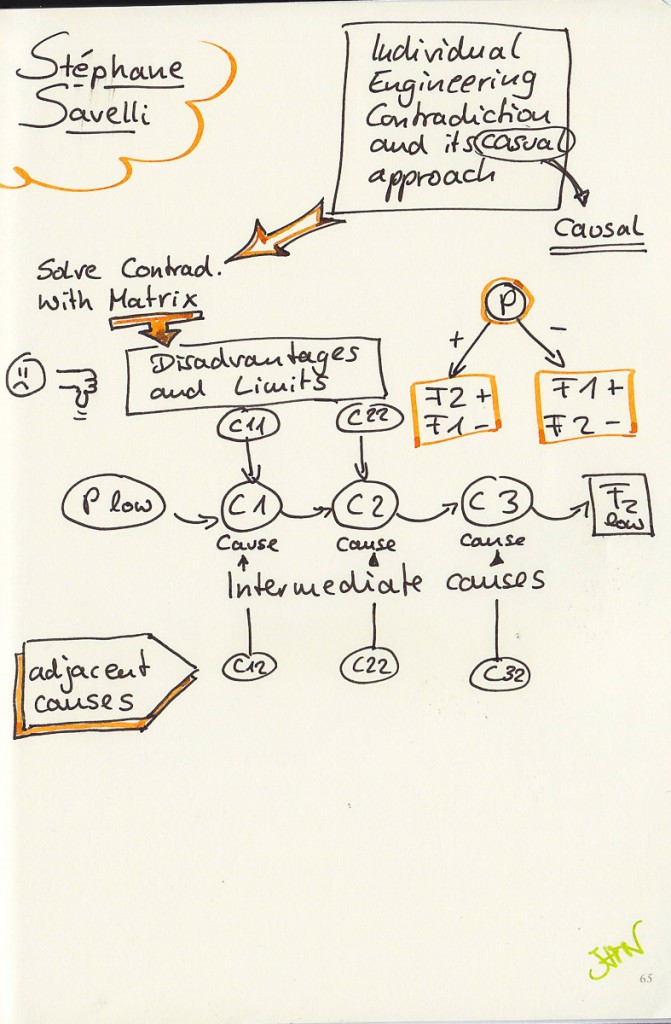 Stéphane
Savelli
Individual
Engineering
Contradiction
and its casual
approach
Causal
Solve Contrad.
with Matrix
P
+
-
Disadvantages
and Limits
F2 +
F1 -
F1 +
F2 -
C11
C22
P low
C1
C2
C3
F2
low
Cause
Cause
Cause
Intermediate causes
adjacent
causes
C12
C22
C32
65